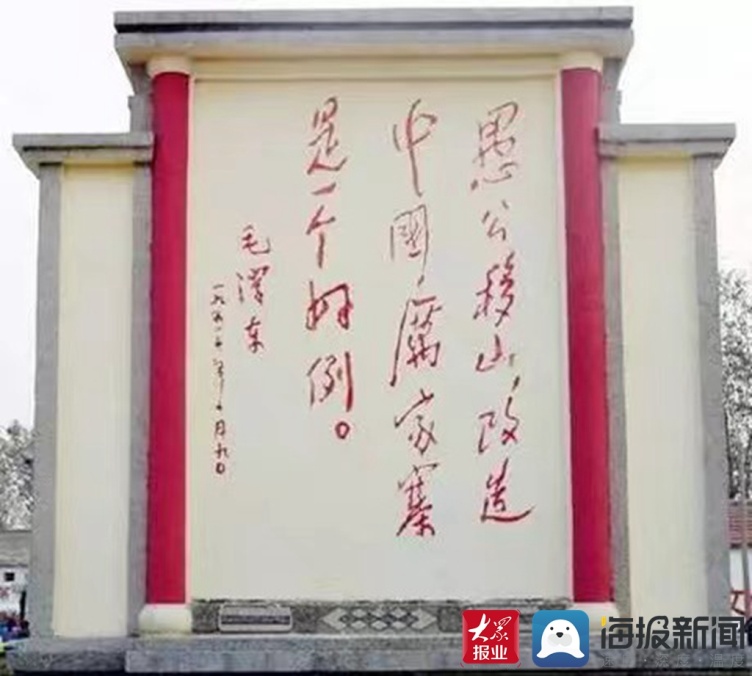 愚公移山，改造
中國，厲家寨
是一个好例。
毛澤东
一九五七年十月九日
大眾
报业
海报新闻